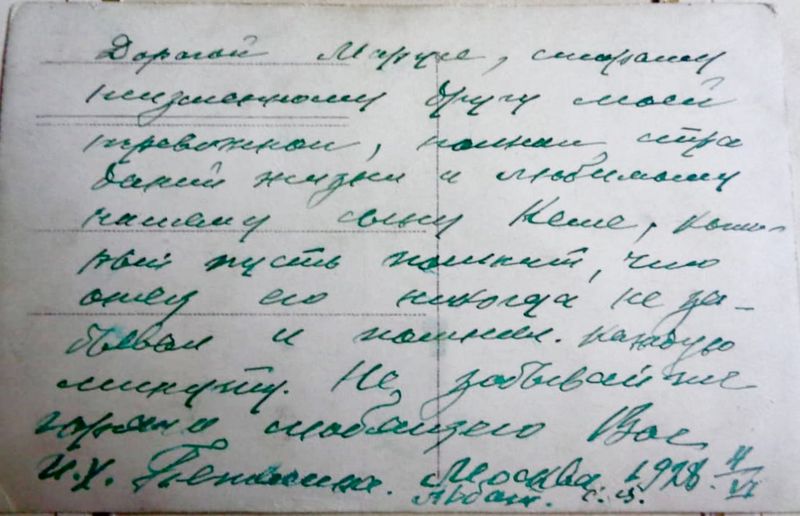 Дорогой Марусе, старому
неизменному другу моей
тревожной, полной стра
даний жизни и любимому
нашему сыну Кеше, кото-
рый пусть помнит, что
отец его никогда не за-
бывал и помнил каждую
минуту. Не забывайте
горячо любящего Вас
И.Х. Москва. 1928. 4/VI
Арбат.